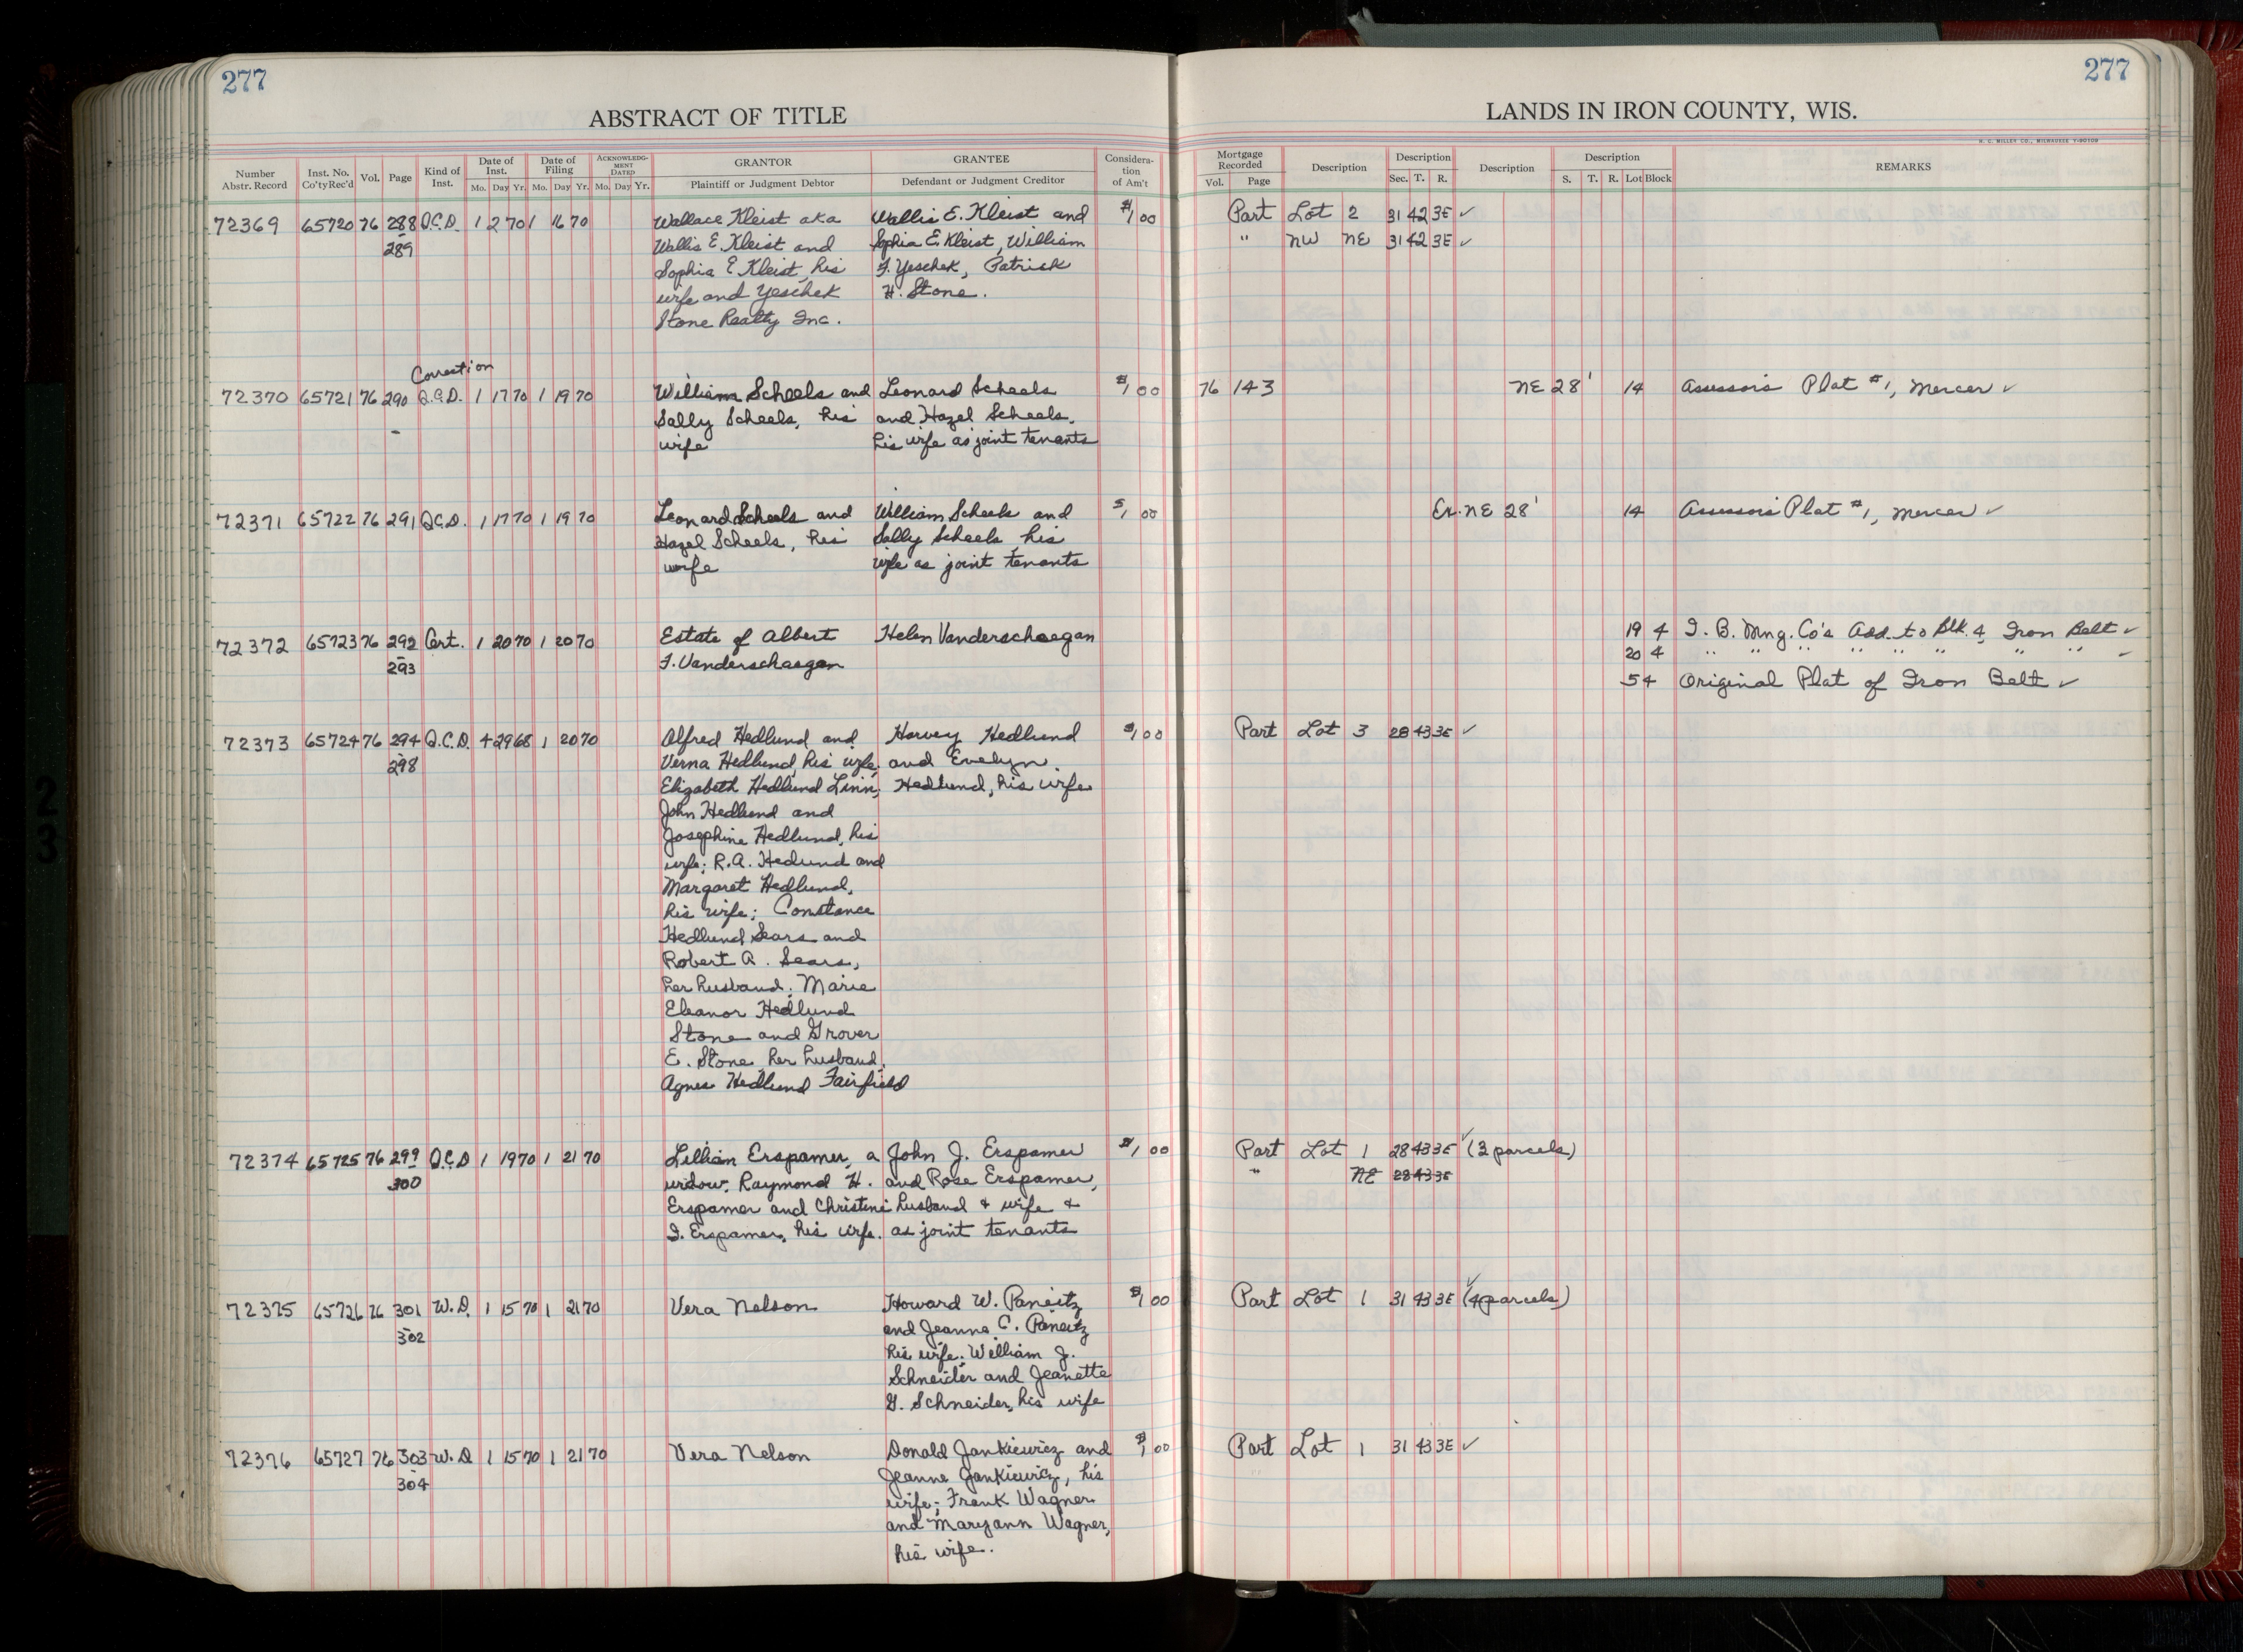 277
277
ABSTRACT OF TITLE
LANDS IN IRON COUNTY, WIS.
H. C. MILLER CO., MILWAUKEE Y-90109
Number Abstr. Record | Inst. No. Co'ty Rec'd | Vol. | Page | Kind of Inst. | Date of Inst. Mo. Day Yr. | Date of Filing Mo. Day Yr. | ACKNOWLEDGMENT DATED Mo. Day Yr. | GRANTOR Plaintiff or Judgment Debtor | GRANTEE Defendant or Judgment Creditor | Consideration of Am't | Mortgage Recorded Vol. Page | Description | Description Sec. T. R. | Description | Description S. T. R. Lot Block | REMARKS
72369 65720 76 288 Q.C.D. 1 2 70 1 16 70 Wallace Kleist aka Wallis E. Kleist and $1 00 Part Lot 2 31 42 3E ✓
289 Wallis E. Kleist and Sophia E. Kleist, William " NW NE 31 42 3E ✓
Sophia E Kleist, his F. Yeschek, Patrick
wife and Yeschek H. Stone.
Stone Realty Inc.
Correction
72370 65721 76 290 Q.C.D. 1 17 70 1 19 70 William Scheels and Leonard Scheels $1 00 76 143 NE 28' 14 Assessors Plat #1, Mercer ✓
Sally Scheels, his and Hazel Scheels,
wife his wife as joint tenants
72371 65722 76 291 Q.C.D. 1 17 70 1 19 70 Leonard Scheels and William Scheels and $1 00 Ex. NE 28' 14 Assessors Plat #1, Mercer ✓
Hazel Scheels, his Sally Scheels, his
wife wife as joint tenants
72372 65723 76 292 Cert. 1 20 70 1 20 70 Estate of Albert Helen Vanderschaegan 19 4 I. B. Mng. Co's Add. to Blk. 4, Iron Belt ✓
293 F. Vanderschaegan 20 4 " " " " " " " " ✓
5 4 Original Plat of Iron Belt ✓
72373 65724 76 294 Q.C.D. 4 29 68 1 20 70 Alfred Hedlund and Harvey Hedlund $1 00 Part Lot 3 28 43 3E ✓
298 Verna Hedlund, his wife; and Evelyn
Elizabeth Hedlund Linn; Hedlund, his wife
John Hedlund and
Josephine Hedlund, his
wife; R.A. Hedund and
Margaret Hedlund,
his wife; Constance
Hedlund Sears and
Robert A. Sears,
her husband; Marie
Eleanor Hedlund
Stone and Grover
E. Stone, her husband,
Agnes Hedlund Fairfield
72374 65725 76 299 Q.C.D 1 19 70 1 21 70 Lillian Erspamer, a John J. Erspamer $1 00 Part Lot 1 28 43 3E ✓ (3 parcels)
300 widow; Raymond H. and Rose Erspamer, " NE 28 43 3E
Erspamer and Christine husband & wife &
I. Erspamer, his wife. as joint tenants
72375 65726 76 301 W.D. 1 15 70 1 21 70 Vera Nelson Howard W. Paneitz $1 00 Part Lot 1 31 43 3E ✓ (4 parcels)
302 and Jeanne C. Paneitz
his wife; William J.
Schneider and Jeanette
G. Schneider, his wife
72376 65727 76 303 W.D 1 15 70 1 21 70 Vera Nelson Donald Jankiewicz and $1 00 Part Lot 1 31 43 3E ✓
304 Jeanne Jankiewicz, his
wife; Frank Wagner
and Maryann Wagner,
his wife.